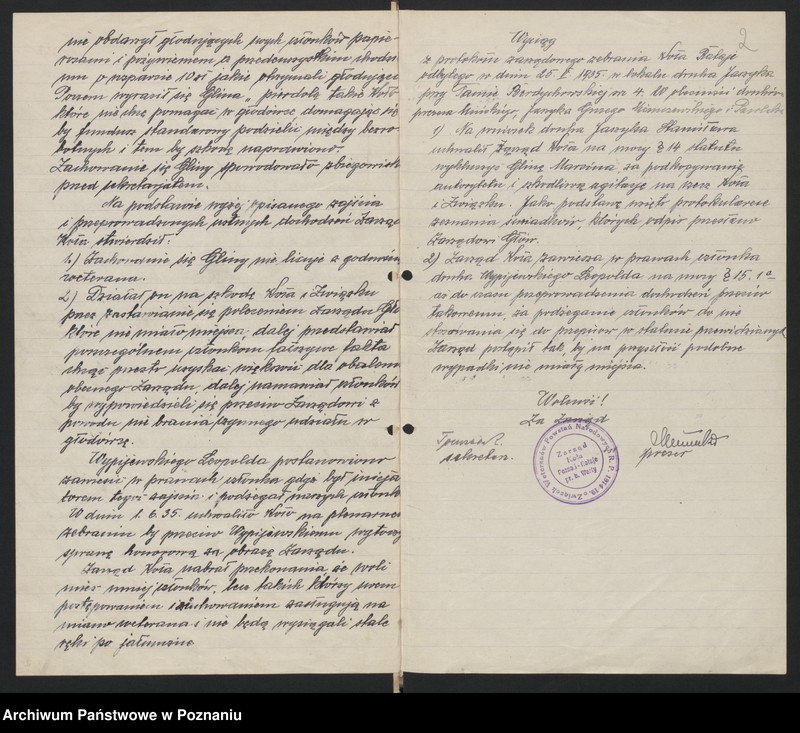 nie obdarzył głodujących swych członków papie-
rosami i pożywieniem a przedewszystkim
mu naprawić 10 zł jakie otrzymali głodujący
Potem wyraził się Glina, "pierdolę takie Koło
które nie chce pomagać w głodówce domagając się
by fundusz standarowy podzielić między bezro-
botnych i tem by szkodę naprawiono".
Zachowanie się Gliny spowodowało zbiegowisko
przed sekretarjatem.
Na podstawie wyżej opisanego zajścia
i przeprowadzonych ustnych dochodzeń Zarząd
Koła stwierdził:
1.) Zachowanie się Gliny nie licuje z godnością
weterana.
2.) Działał on na szkodę Koła i Związku
przez zastawianie się poleceniem Zarządu Gł.
które nie miało miejsca, dalej przedstawiał
poszczególnem członkom fałszywe fakta
chcąc przez to uzyskać większość dla obalenia
obecnego Zarządu, dalej namawiał członków
by wypowiedzieli się przeciw Zarządowi z
powodu nie brania czynnego udziału w
głodówce.
Wypijewskiego Leopolda postanowiono
zawiesić w prawach członka gdyż był inicja-
torem tego zajścia i podżegał naszych członk
W dniu 1. 6. 35. uchwaliło Koło na plenarnem
zebraniu by przeciw Wypijewskiemu wytoczyć
sprawę honorową za obrazę Zarządu.
Zarząd Koła nabrał przekonania, że woli
mieć mniej członków, lecz takich którzy swem
postępowaniem i zachowaniem zasługują na
miano weterana i nie będą wyciągali stale
ręki po jałmużnę
2
Wyciąg
z protokółu zarządowego zebrania Koła Rataje
odbytego w dniu 25 V. 1935. w lokalu druha Jarzyka
przy Tamie Berdychowskiej nr 4. w obecności druhów
prezesa Jarzyka
1) Na wniosek druha Jarzyka Stanisława
uchwalił Zarząd Koła na mocy § 14 statutu
wykluczyć Glinę Marcina, za podkopywanie
autorytetu i szkodliwą agitację na rzecz Koła
i Związku. Jako podstawę wzięto protokularne
zeznania świadków, których odpis przesłano
Zarządowi Głów.
2) Zarząd Koła zawiesza w prawach członka
druha Wypijewskiego Leopolda na mocy § 15. 1 a
aż do czasu przeprowadzenia dochodzeń przeciw
takowemu, za podżeganie członków do nie
stosowania się do przepisów w statucie przewidzianych
Zarząd postąpił tak, by na przyszłość podobne
wypadki nie miały miejsca.
Wolność!
Za Zarząd
sekretarz.
prezes
Związek Weteranów Powstań Narodowych R. P. 1914/19
Zarząd
Koła
Poznań-Rataje